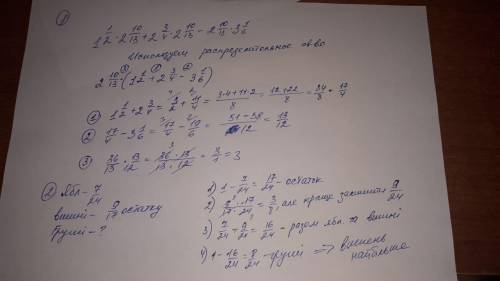 ①
1 1/2 · 2 10/13 + 2 3/4 · 2 10/13 - 2 10/13 · 3 1/6
Используем распределительное св-во
2 10/13 · (1 1/2 + 2 3/4 - 3 1/6)
① 1 1/2 + 2 3/4 = 3/2 + 11/4 = (3·4+11·2)/8 = (12+22)/8 = 34/8 = 17/4
② 17/4 - 3 1/6 = 17/4 - 19/6 = (51-38)/12 = 13/12
③ 36/13 · 13/12 = (36·13)/(13·12) = 3/1 = 3
② Ябл - 7/24
вишні - 9/17 остатку
Груші - ?
1) 1 - 7/24 = 17/24 - остаток
2) = 3/8, але краще 9/24
3) 7/24 + 9/24 = 16/24 - разом ябл. та вишні
4) 1 - 16/24 = 8/24 - груші ⇒ вишень
найбільше